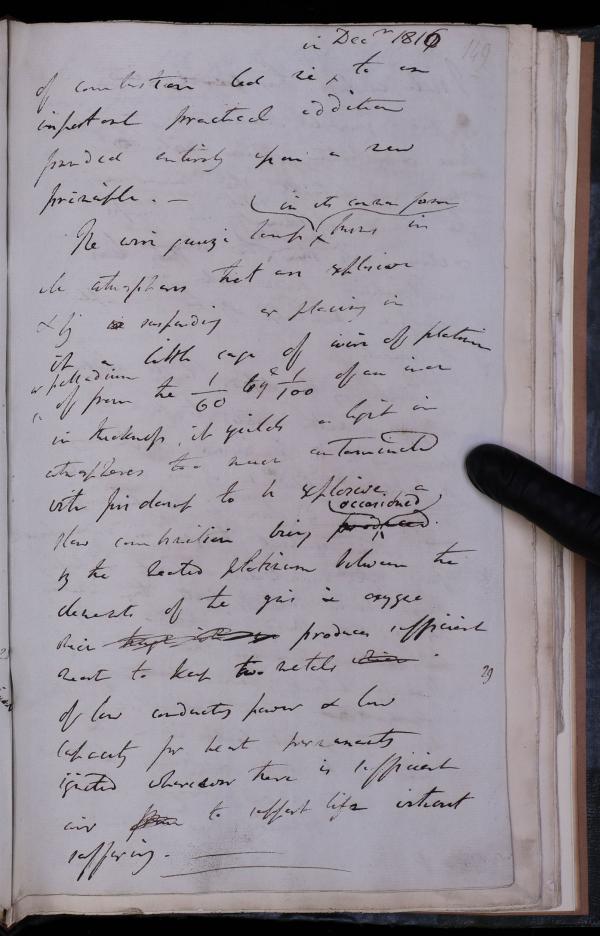 149
in Decr 1816
of combustion led me to an
important practical addition
founded entirely upon a new
principle. —
in its common form
The wire gauze lamp burns in
atmospheres that are explosive
& by suspending or placing in
it a little cage of wire of platinum
or palladium
of from the 1/60 to 1/100 of an inch
in thickness, it yields a light in
atmospheres too much contaminated
with fire damp to be explosive a
occasioned
slow combustion being produced
by the heated platinum between the
elements of the gas & oxygen
which produces sufficient
heat to keep metals
29
of low conducting power & low
capacity for heat permanently
ignited wherever there is sufficient
air to support life without
suffering.